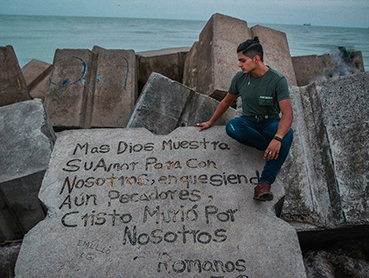 Mas Dios Muestra
Su Amor Para Con
Nosotros, en que siend
Aún Pecadores,
Cristo Murió Por
Nosotros
Romanos